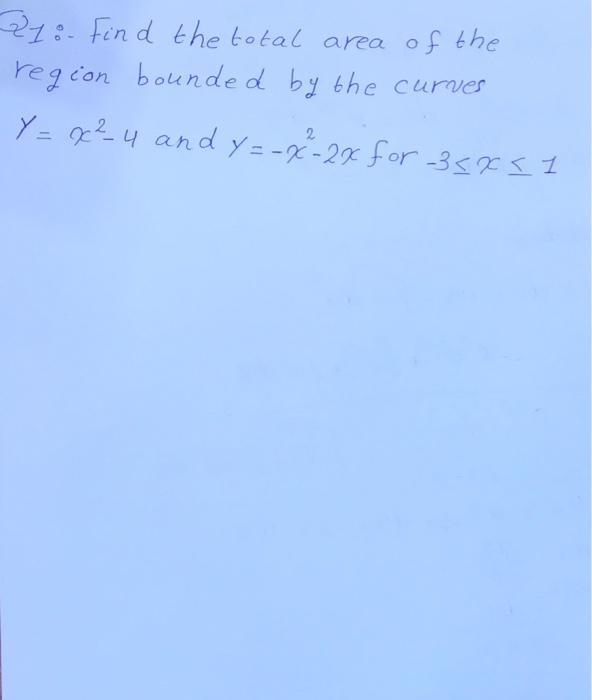 Q1:- Find the total area of the
region bounded by the curves
Y= x²-4 and y=-x²-2x for -3≤x≤1